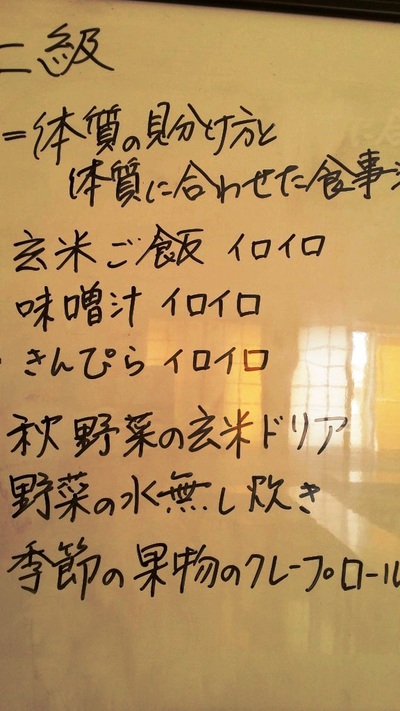 二級
=体質の見分け方と
体質に合わせた食事
玄米ご飯 イロイロ
味噌汁 イロイロ
きんぴら イロイロ
秋野菜の玄米ドリア
野菜の水無し炊き
季節の果物のクレープロール